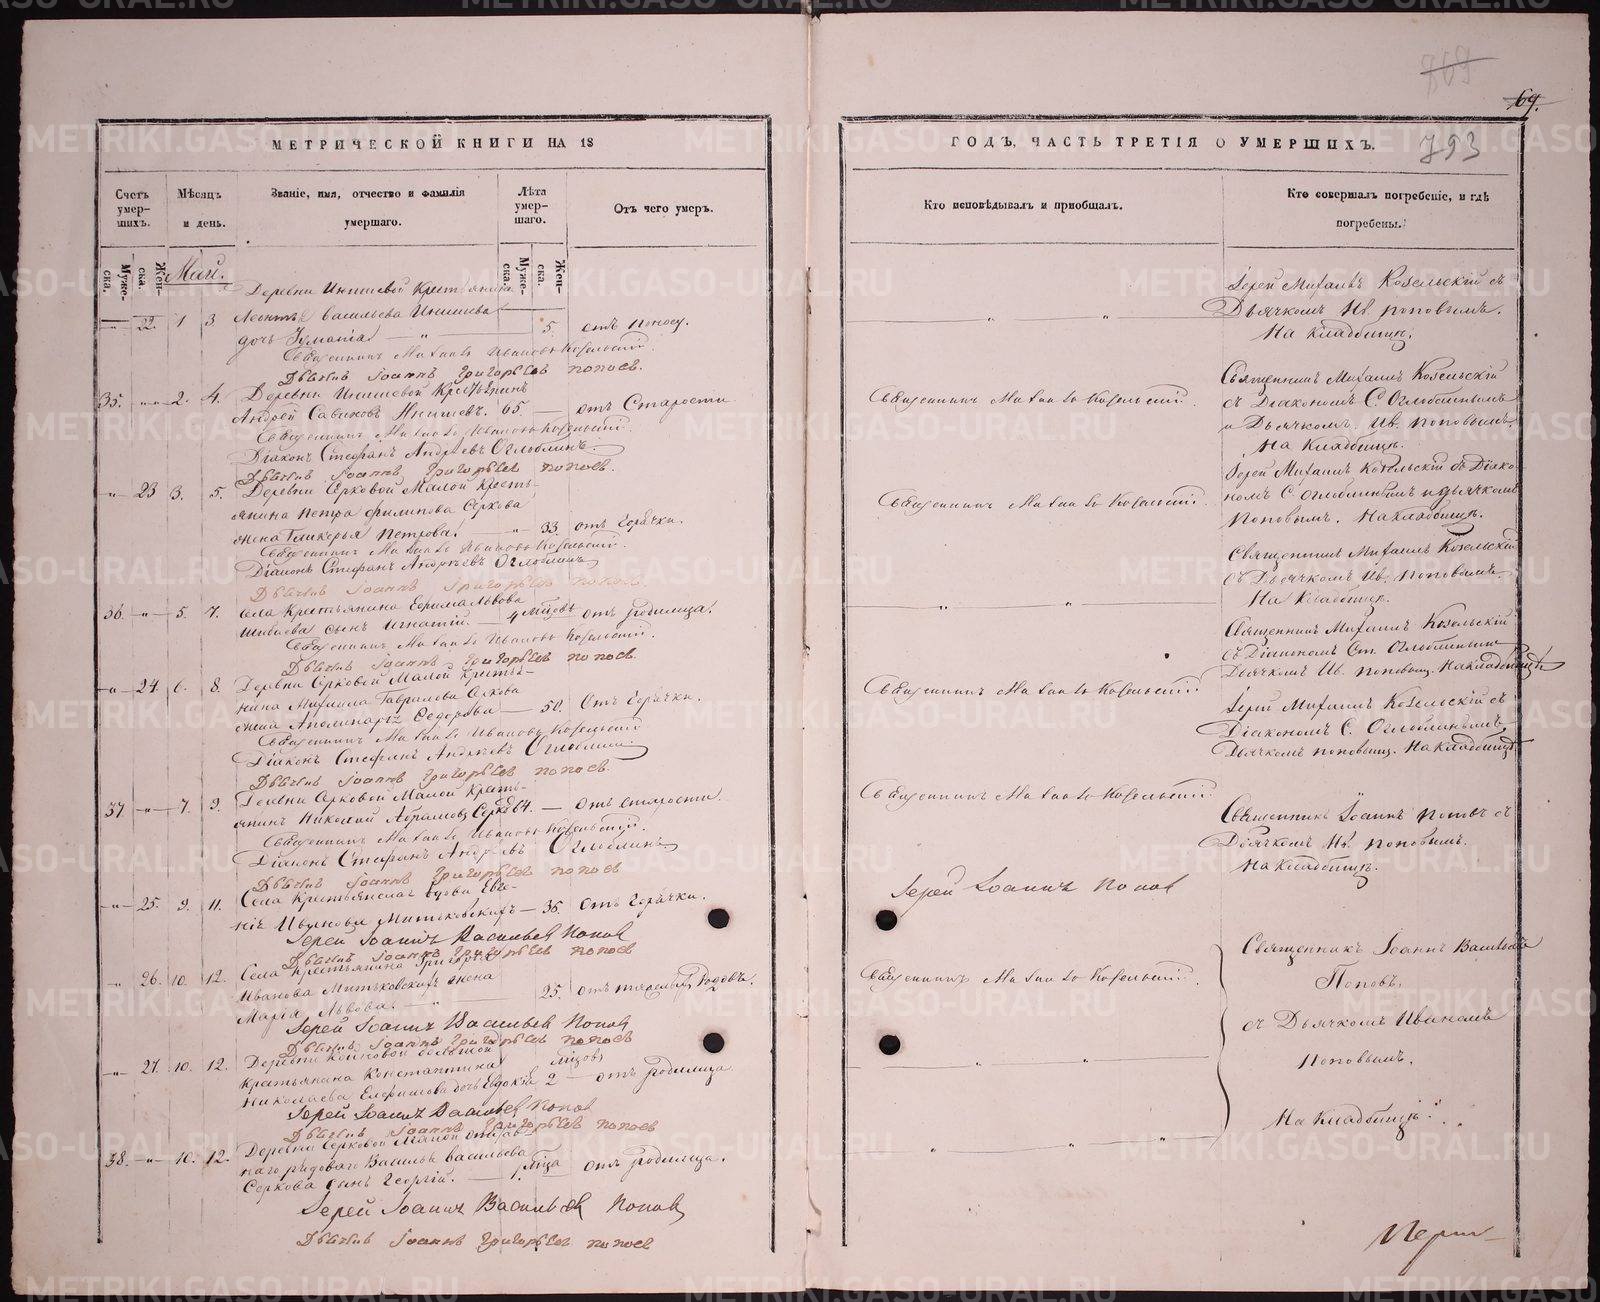 793
МЕТРИЧЕСКОЙ КНИГИ НА 18
ГОДЪ, ЧАСТЬ ТРЕТІЯ О УМЕРШИХЪ.
Счетъ умер-шихъ.
Мѣсяцъ и день.
Званіе, имя, отчество и фамилія умершаго.
Лѣта умер-шаго.
Отъ чего умеръ.
Кто исповѣдывалъ и пріобщалъ.
Кто совершалъ погребеніе, и гдѣ погребены.
Муже-ска.
Жен-ска.
Муже-ска.
Жен-ска.
Май.
Деревни
Васильева
22. 1 3
дочь 5. отъ поноса.
Священникъ Михаилъ Ивановъ Козельскій.
Дьячекъ Іоаннъ Григорьевъ Поповъ.
Іерей Михаилъ Козельскій съ
Дьячкомъ Ив. Поповымъ.
На кладбищѣ.
35. 2. 4. Деревни Крестьянинъ
Андрей 65. отъ Старости
Священникъ Михаилъ Ивановъ Козельскій.
Діаконъ Стефанъ Андреевъ Оглоблинъ.
Дьячекъ Іоаннъ Григорьевъ Поповъ.
Священникъ Михаилъ Козельскій.
Священникъ Михаилъ Козельскій
съ Діакономъ С. Оглоблинымъ
и Дьячкомъ Ив. Поповымъ.
На Кладбищѣ.
23 3. 5. Деревни Серковой Малой Кресть-
янина Петра Филипова Серкова
жена Гликерья Петрова. 33 отъ Горячки.
Священникъ Михаилъ Ивановъ Козельскій.
Діаконъ Стефанъ Андреевъ Оглоблинъ
Дьячекъ Іоаннъ Григорьевъ Поповъ.
Священникъ Михаилъ Козельскій.
Іерей Михаилъ Козельскій съ Діако-
номъ С. Оглоблинымъ и Дьячкомъ
Поповымъ. На кладбищѣ.
36. 5. 7. Села Крестьянина Ефима Львова
сынъ Игнатій. 4 отъ родимца.
Священникъ Михаилъ Ивановъ Козельскій.
Дьячекъ Іоаннъ Григорьевъ Поповъ.
Священникъ Михаилъ Козельскій
съ Дьячкомъ Ив. Поповымъ
На Кладбищѣ.
24 6. 8. Деревни Серковой Малой Крестья-
нина Михаила Гаврилова
жена Ѳедорова 50. Отъ Горячки.
Священникъ Михаилъ Ивановъ Козельскій
Діаконъ Стефанъ Андреевъ Оглоблинъ
Дьячекъ Іоаннъ Григорьевъ Поповъ.
Священникъ Михаилъ Козельскій
Священникъ Михаилъ Козельскій
съ Діакономъ Ст. Оглоблинымъ
Дьячкомъ Ив. Поповым. На кладбищѣ
37 7. 9. Деревни Серковой Малой Кресть-
янинъ Николай Абрамовъ 64. отъ старости.
Священникъ Михаилъ Ивановъ Козельскій.
Діаконъ Стефанъ Андреевъ Оглоблинъ
Дьячекъ Іоаннъ Григорьевъ Поповъ
Священникъ Михаилъ Козельскій
Іерей Михаилъ Козельскій съ
Діакономъ С. Оглоблинымъ
Дьячкомъ Поповым. На кладбищѣ
25. 9. 11. Села Крестьянская вдова Евге-
нія Иванова 36. Отъ Горячки.
Іерей Іоаннъ Васильевъ Поповъ
Дьячекъ Іоаннъ Григорьевъ Поповъ
Іерей Іоаннъ Поповъ
Священникъ Іоаннъ Поповъ съ
Дьячкомъ Ив. Поповымъ.
На Кладбищѣ.
26. 10. 12. Села Крестьянина Григорія
Иванова жена
Марія Львова. 25. отъ родовъ.
Іерей Іоаннъ Васильевъ Поповъ
Дьячекъ Іоаннъ Григорьевъ Поповъ
Священникъ Михаилъ Козельскій.
Священникъ Іоаннъ Васильевъ
Поповъ,
съ Дьячкомъ Иваномъ
Поповымъ.
На Кладбищѣ.
27. 10. 12. Деревни большой
Крестьянина Константина
Николаева дочь Евдокія 2 отъ родимца
Іерей Іоаннъ Васильевъ Поповъ
Дьячекъ Іоаннъ Григорьевъ Поповъ
38. 10. 12. Деревни Серковой Малой
рядоваго Василья Васильева
Серкова сынъ Георгій. 1. отъ родимца.
Іерей Іоаннъ Васильевъ Поповъ
Дьячекъ Іоаннъ Григорьевъ Поповъ
METRIKI.GASO-URAL.RU